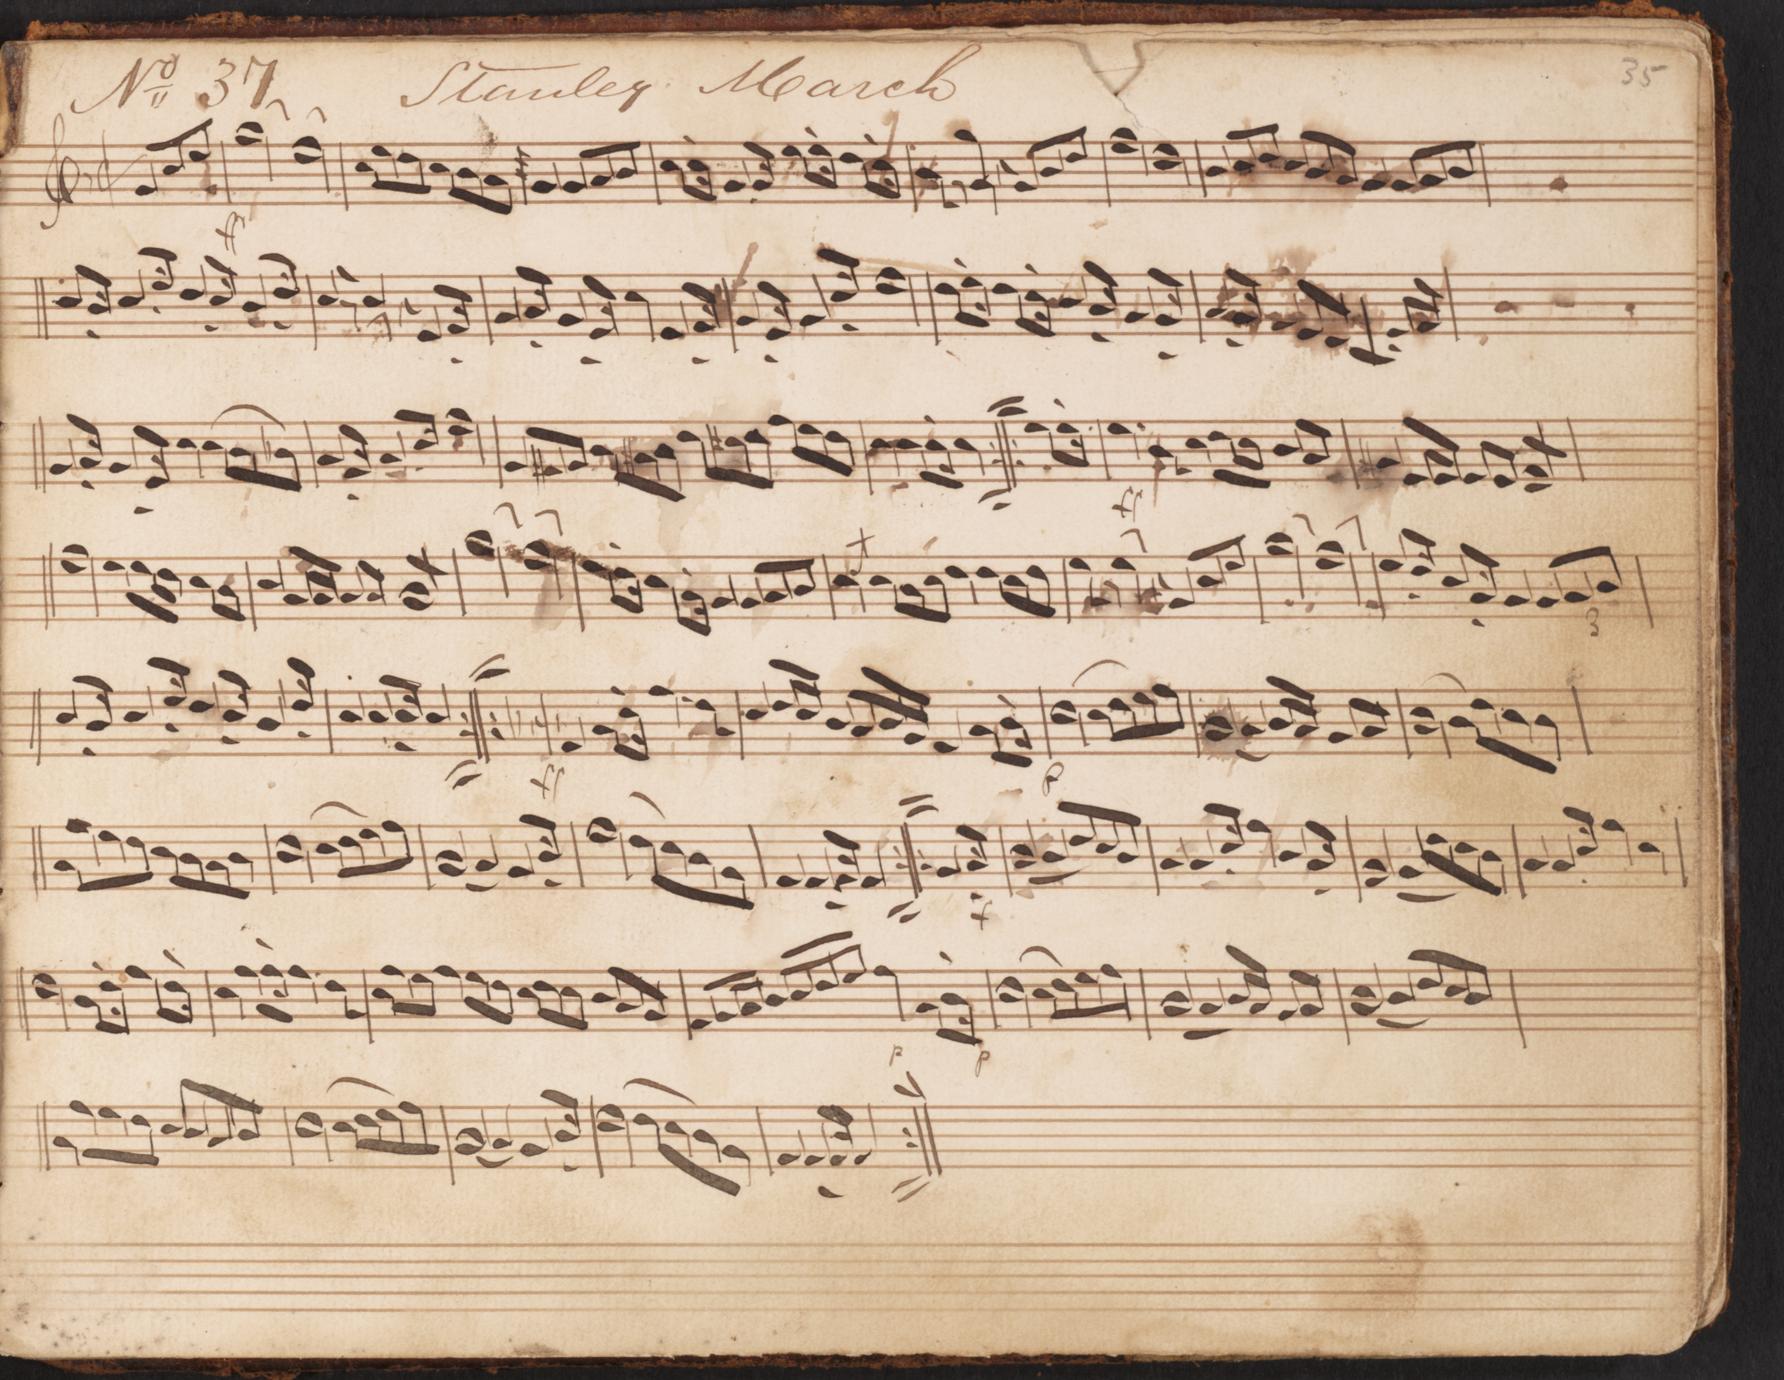 No 37 Stanley March 35
f
ff
3
ff p
f
p p